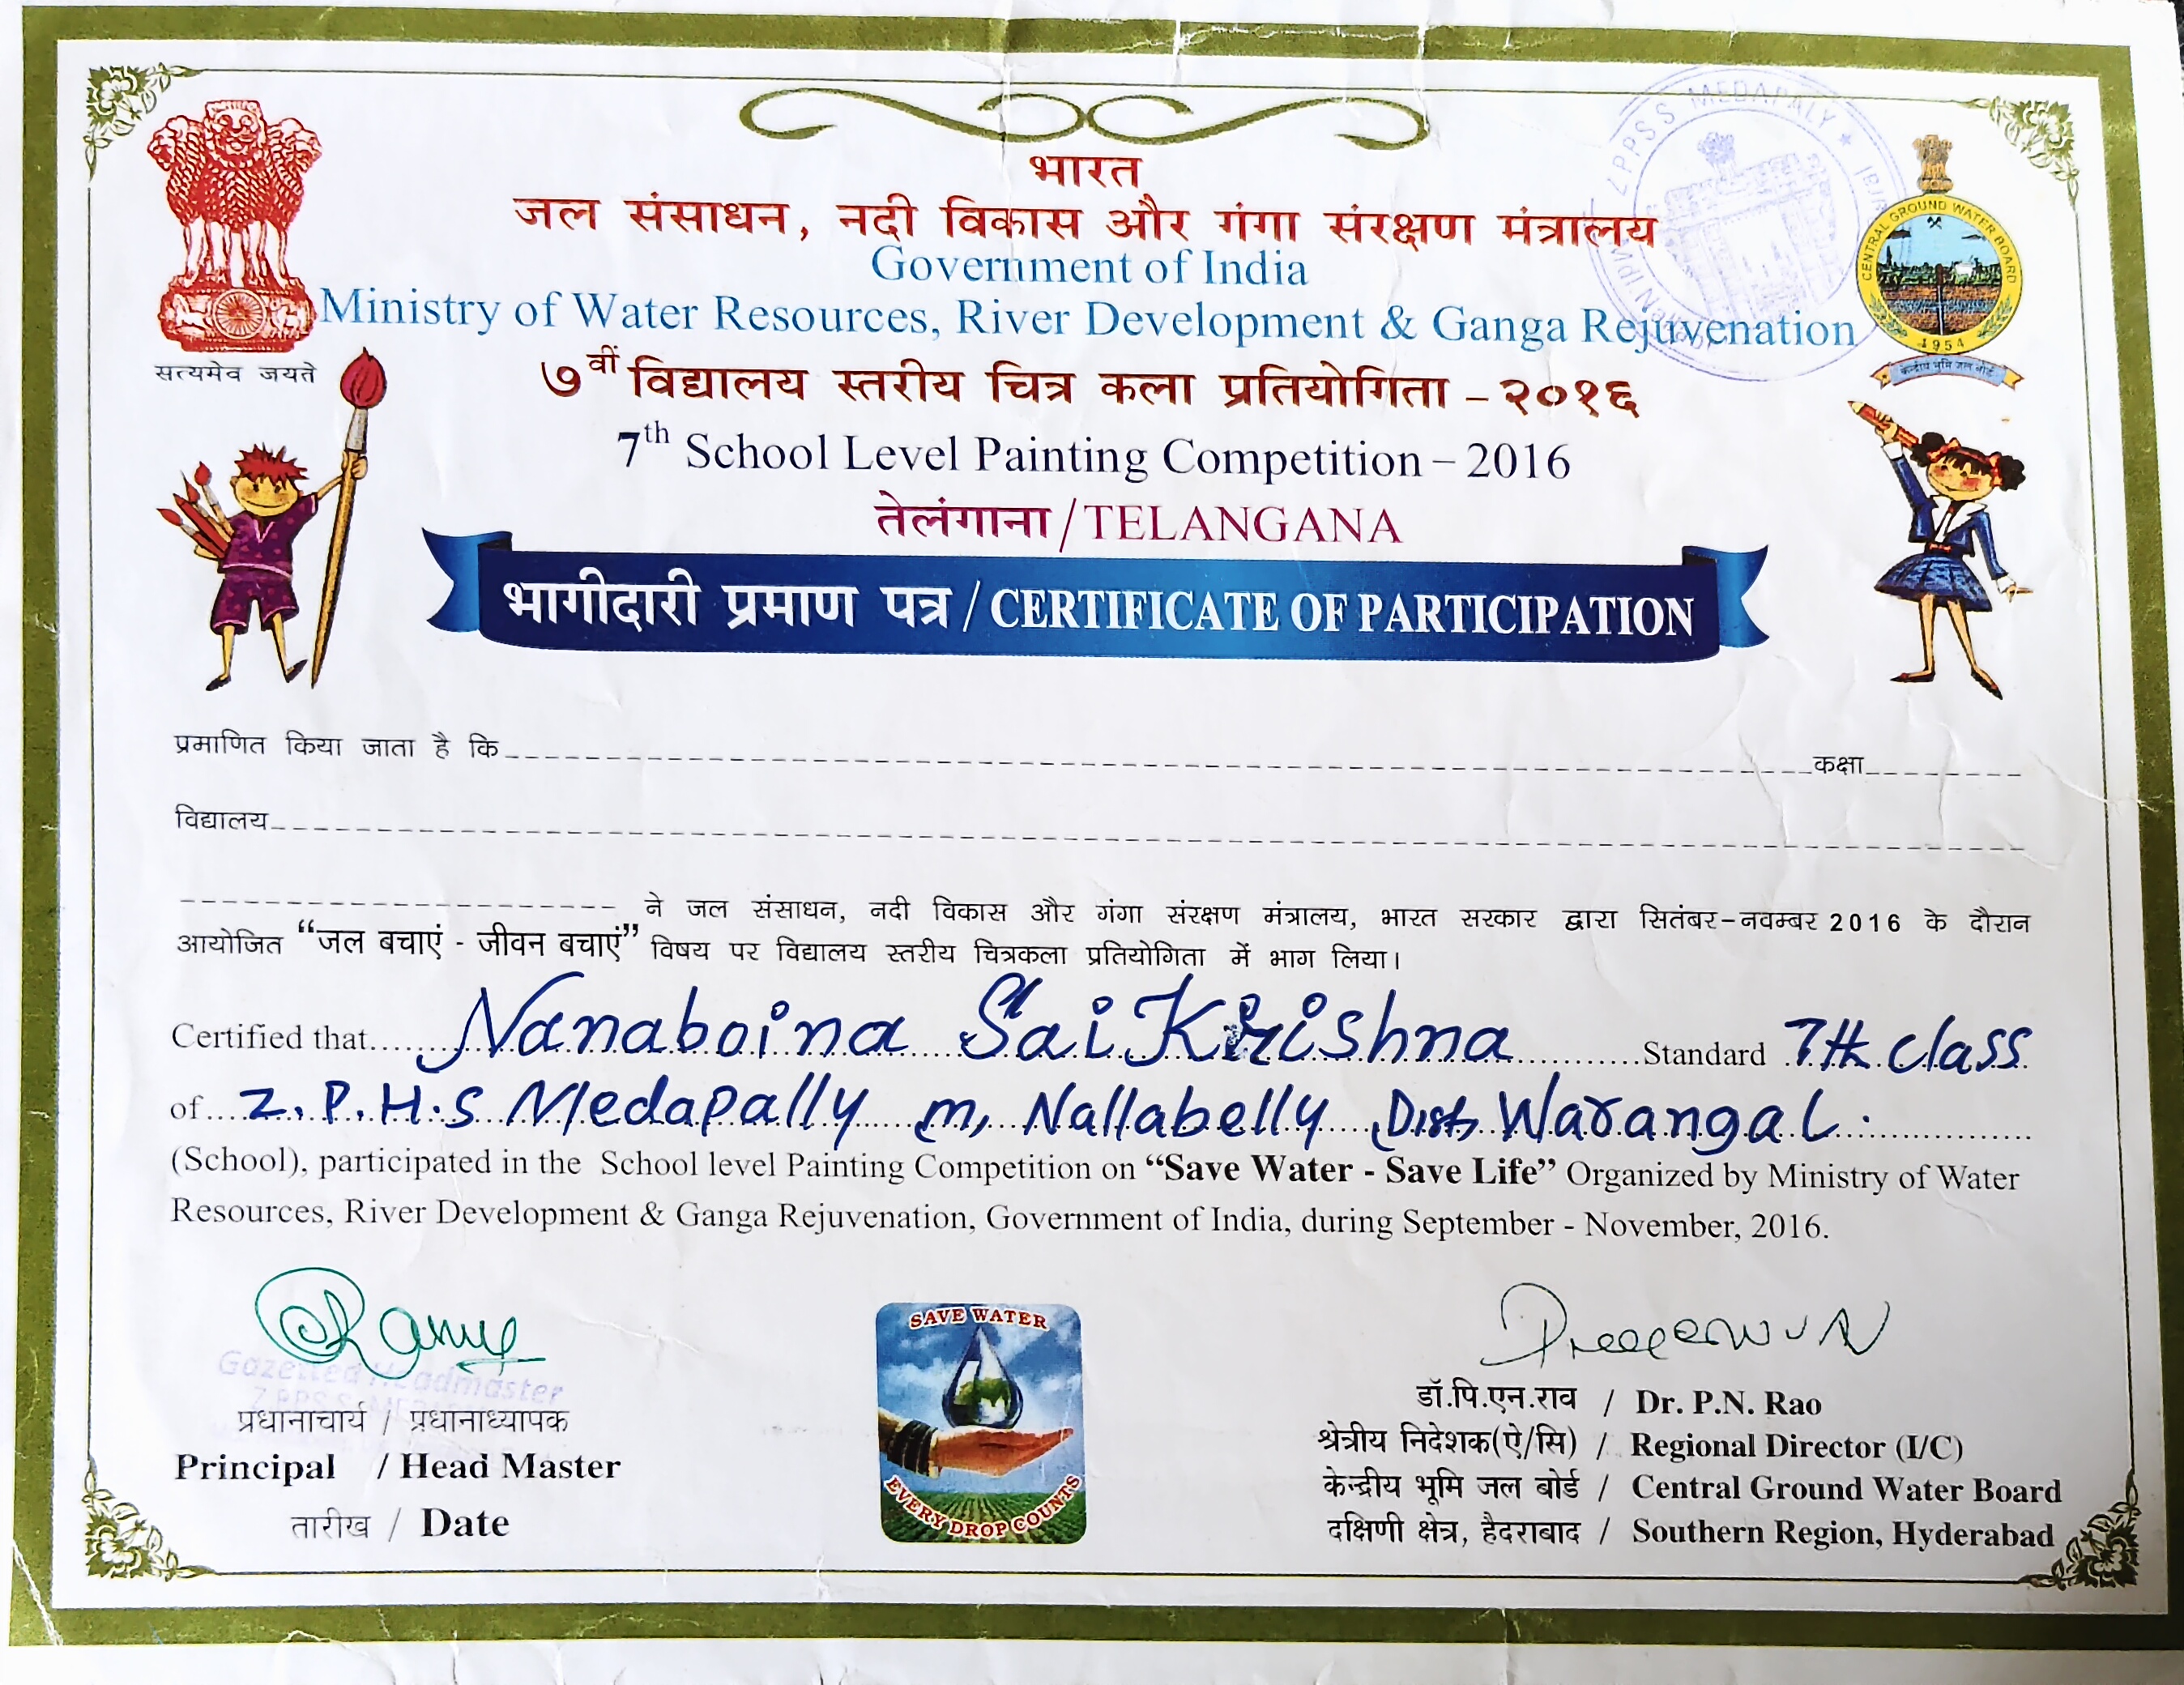 भारत
जल संसाधन, नदी विकास और गंगा संरक्षण मंत्रालय
Government of India
Ministry of Water Resources, River Development & Ganga Rejuvenation
सत्यमेव जयते
CENTRAL GROUND WATER BOARD
1954
केन्द्रीय भूमि जल बोर्ड
Z.P.P.S.S MEDAPALY
७वीं विद्यालय स्तरीय चित्र कला प्रतियोगिता – २०१६
7th School Level Painting Competition – 2016
तेलंगाना / TELANGANA
भागीदारी प्रमाण पत्र / CERTIFICATE OF PARTICIPATION
प्रमाणित किया जाता है कि कक्षा
विद्यालय
ने जल संसाधन, नदी विकास और गंगा संरक्षण मंत्रालय, भारत सरकार द्वारा सितंबर-नवम्बर 2016 के दौरान
आयोजित “जल बचाएं - जीवन बचाएं” विषय पर विद्यालय स्तरीय चित्रकला प्रतियोगिता में भाग लिया।
Certified that Nanaboina Sai Krishna Standard 7th class
of Z.P.H.S Medapally m, Nallabelly Dist, Warangal.
(School), participated in the School level Painting Competition on “Save Water - Save Life” Organized by Ministry of Water
Resources, River Development & Ganga Rejuvenation, Government of India, during September - November, 2016.
Gazetted Headmaster
प्रधानाचार्य / प्रधानाध्यापक
Principal / Head Master
तारीख / Date
SAVE WATER
EVERY DROP COUNTS
डॉ.पि.एन.राव / Dr. P.N. Rao
श्रेत्रीय निदेशक(ऐ/सि) / Regional Director (I/C)
केन्द्रीय भूमि जल बोर्ड / Central Ground Water Board
दक्षिणी क्षेत्र, हैदराबाद / Southern Region, Hyderabad